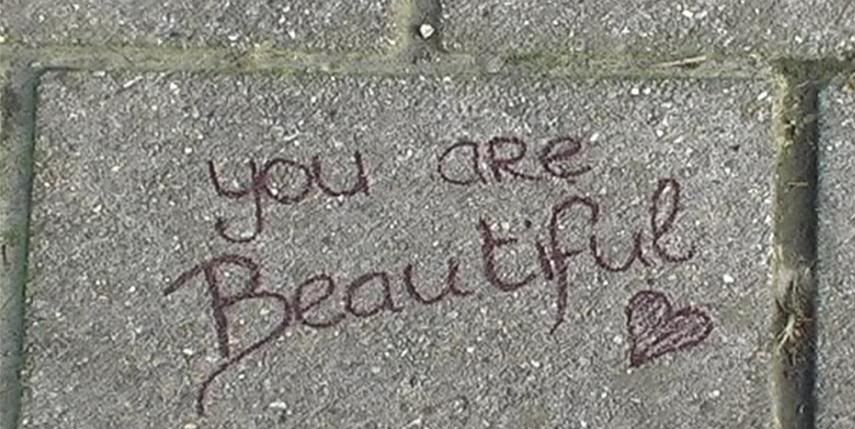 you are
Beautiful